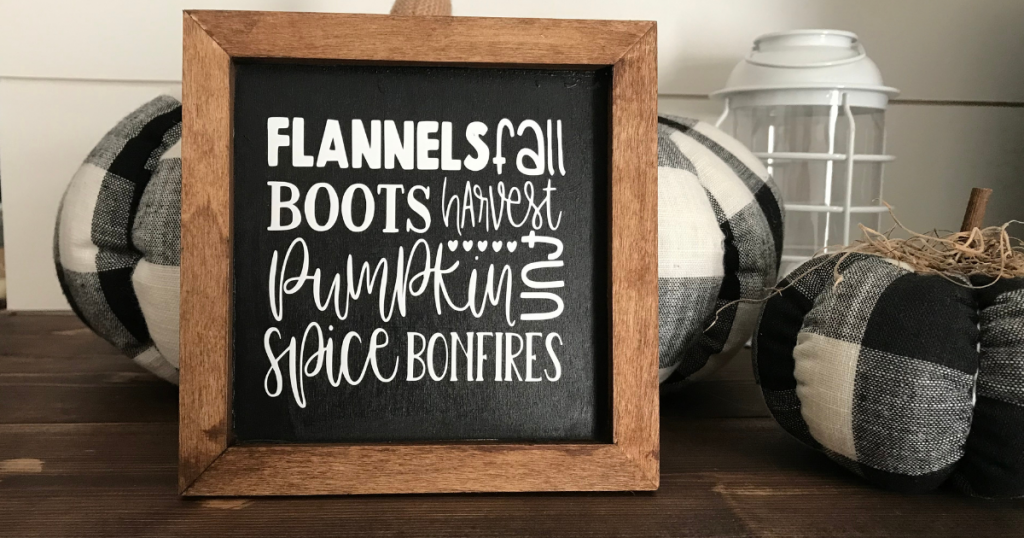 FLANNELS fall
BOOTS harvest
pumpkin fun
spice BONFIRES